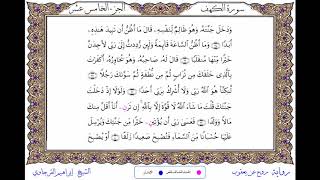 سورة الكهف
الجزء الخامس عشر
وَدَخَلَ جَنَّتَهُ وَهُوَ ظَالِمٌ لِّنَفْسِهِ قَالَ مَا أَظُنُّ أَن تَبِيدَ هَذِهِ
أَبَدًا وَمَا أَظُنُّ السَّاعَةَ قَائِمَةً وَلَئِن رُّدِدتُّ إِلَى رَبِّي لَأَجِدَنَّ
خَيْرًا مِّنْهَا مُنقَلَبًا قَالَ لَهُ صَاحِبُهُ وَهُوَ يُحَاوِرُهُ أَكَفَرْتَ
بِالَّذِي خَلَقَكَ مِن تُرَابٍ ثُمَّ مِن نُّطْفَةٍ ثُمَّ سَوَّاكَ رَجُلًا
لَّكِنَّا هُوَ اللَّهُ رَبِّي وَلَا أُشْرِكُ بِرَبِّي أَحَدًا وَلَوْلَا إِذْ دَخَلْتَ
جَنَّتَكَ قُلْتَ مَا شَاءَ اللَّهُ لَا قُوَّةَ إِلَّا بِاللَّهِ إِن تَرَنِ أَنَا أَقَلَّ مِنكَ
مَالًا وَوَلَدًا فَعَسَى رَبِّي أَن يُؤْتِيَنِ خَيْرًا مِّن جَنَّتِكَ وَيُرْسِلَ
عَلَيْهَا حُسْبَانًا مِّنَ السَّمَاءِ فَتُصْبِحَ صَعِيدًا زَلَقًا أَوْ يُصْبِحَ
رواية روح عن يعقوب
الشيخ إبراهيم